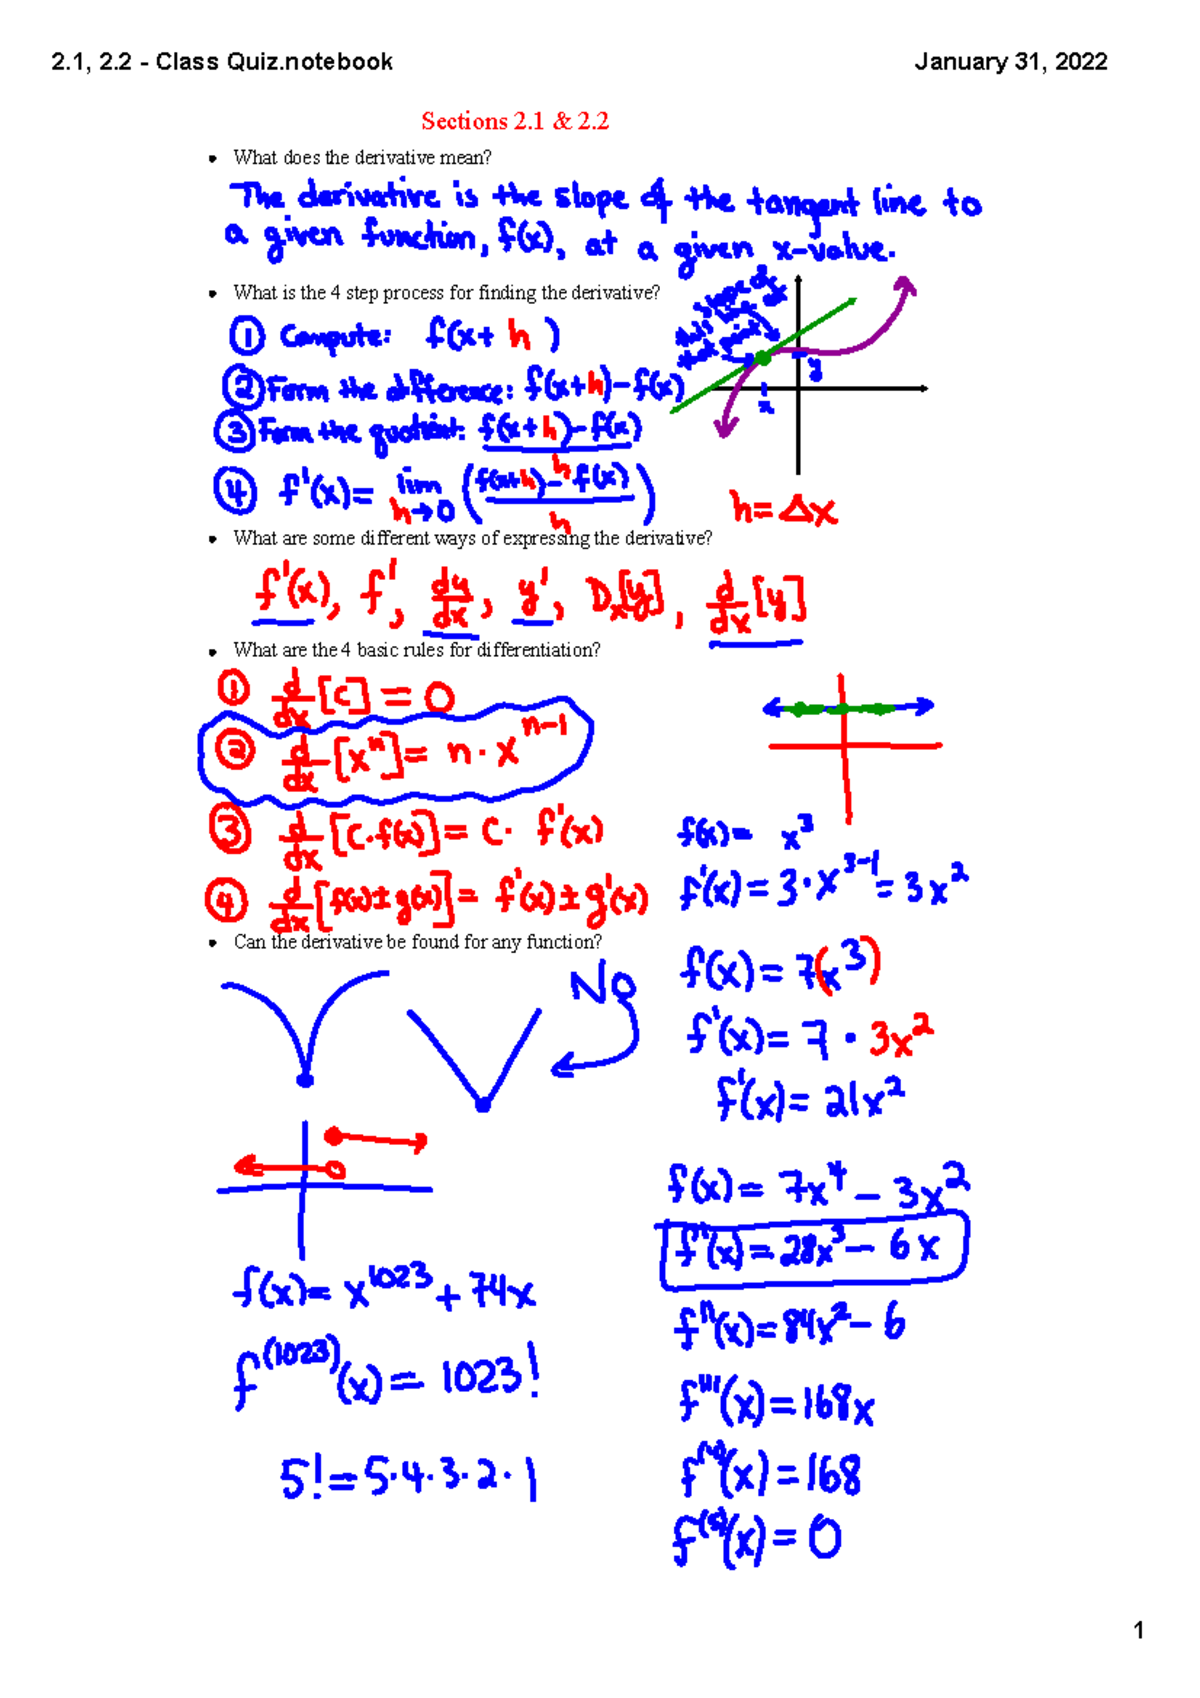 2.1, 2.2 - Class Quiz.notebook
January 31, 2022
Sections 2.1 & 2.2
• What does the derivative mean?
The derivative is the slope of the tangent line to
a given function, f(x), at a given x-value.
• What is the 4 step process for finding the derivative?
① Compute: f(x+ h )
② Form the difference: f(x+h)-f(x)
③ Form the quotient: f(x+h)-f(x)
h
④ f'(x)= lim h→0 (f(x+h)-f(x)
h)
slope of
this line at
that point
y
x
h=Δx
• What are some different ways of expressing the derivative?
f'(x), f', dy/dx, y', Dx[y], d/dx[y]
• What are the 4 basic rules for differentiation?
① d/dx [c] = 0
② d/dx [xⁿ] = n·xⁿ⁻¹
③ d/dx [c·f(x)] = c· f'(x)
④ d/dx [f(x)±g(x)] = f'(x)±g'(x)
f(x)= x³
f'(x)=3·x³⁻¹=3x²
• Can the derivative be found for any function?
No
f(x)=7(x³)
f'(x)=7·3x²
f'(x)=21x²
f(x)=7x⁴-3x²
f'(x)=28x³-6x
f''(x)=84x²-6
f'''(x)=168x
f⁽⁴⁾(x)=168
f⁽⁵⁾(x)=0
f(x)=x¹⁰²³+74x
f⁽¹⁰²³⁾(x)=1023!
5!=5·4·3·2·1
1